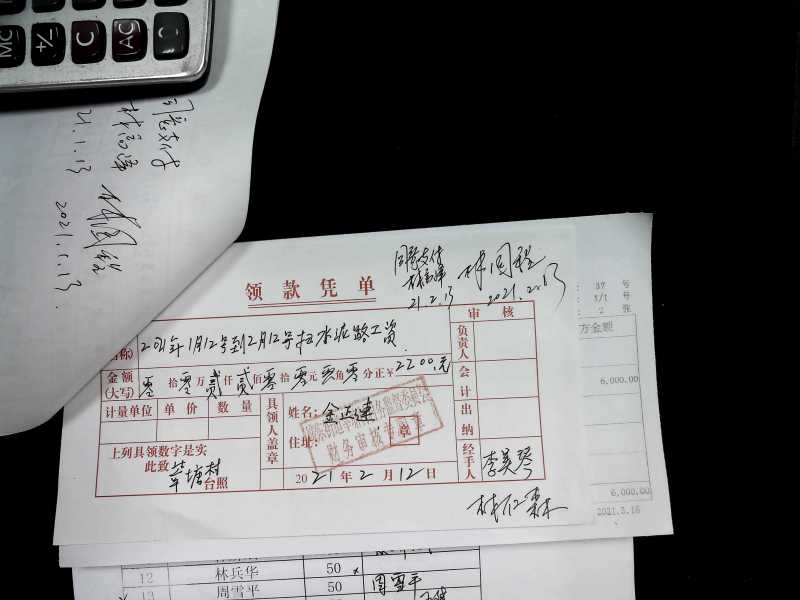 MC
+/-
C
AC
同意支付
21.1.13
2021.1.13.
37 号
1/1 号
2 张
同意支付
21.2.13
2021.2.13
领款凭单
审核
方金额
名称)
2021年1月12号到2月12号扫水泥路工资
负责人
金额
(大写)
零拾零万贰仟贰佰零拾零元零角零分正¥2200.元
会计
6,000.00
计量单位 单价 数量
具领人盖章
姓名:金正连
住址:
财务审核专用章
出纳
上列具领数字是实
此致
莘塘村
台照
2021年2月12日
经手人
李美琴
6,000.00
2021.3.16
12 林兵华 50
13 周雪平 50 周雪平